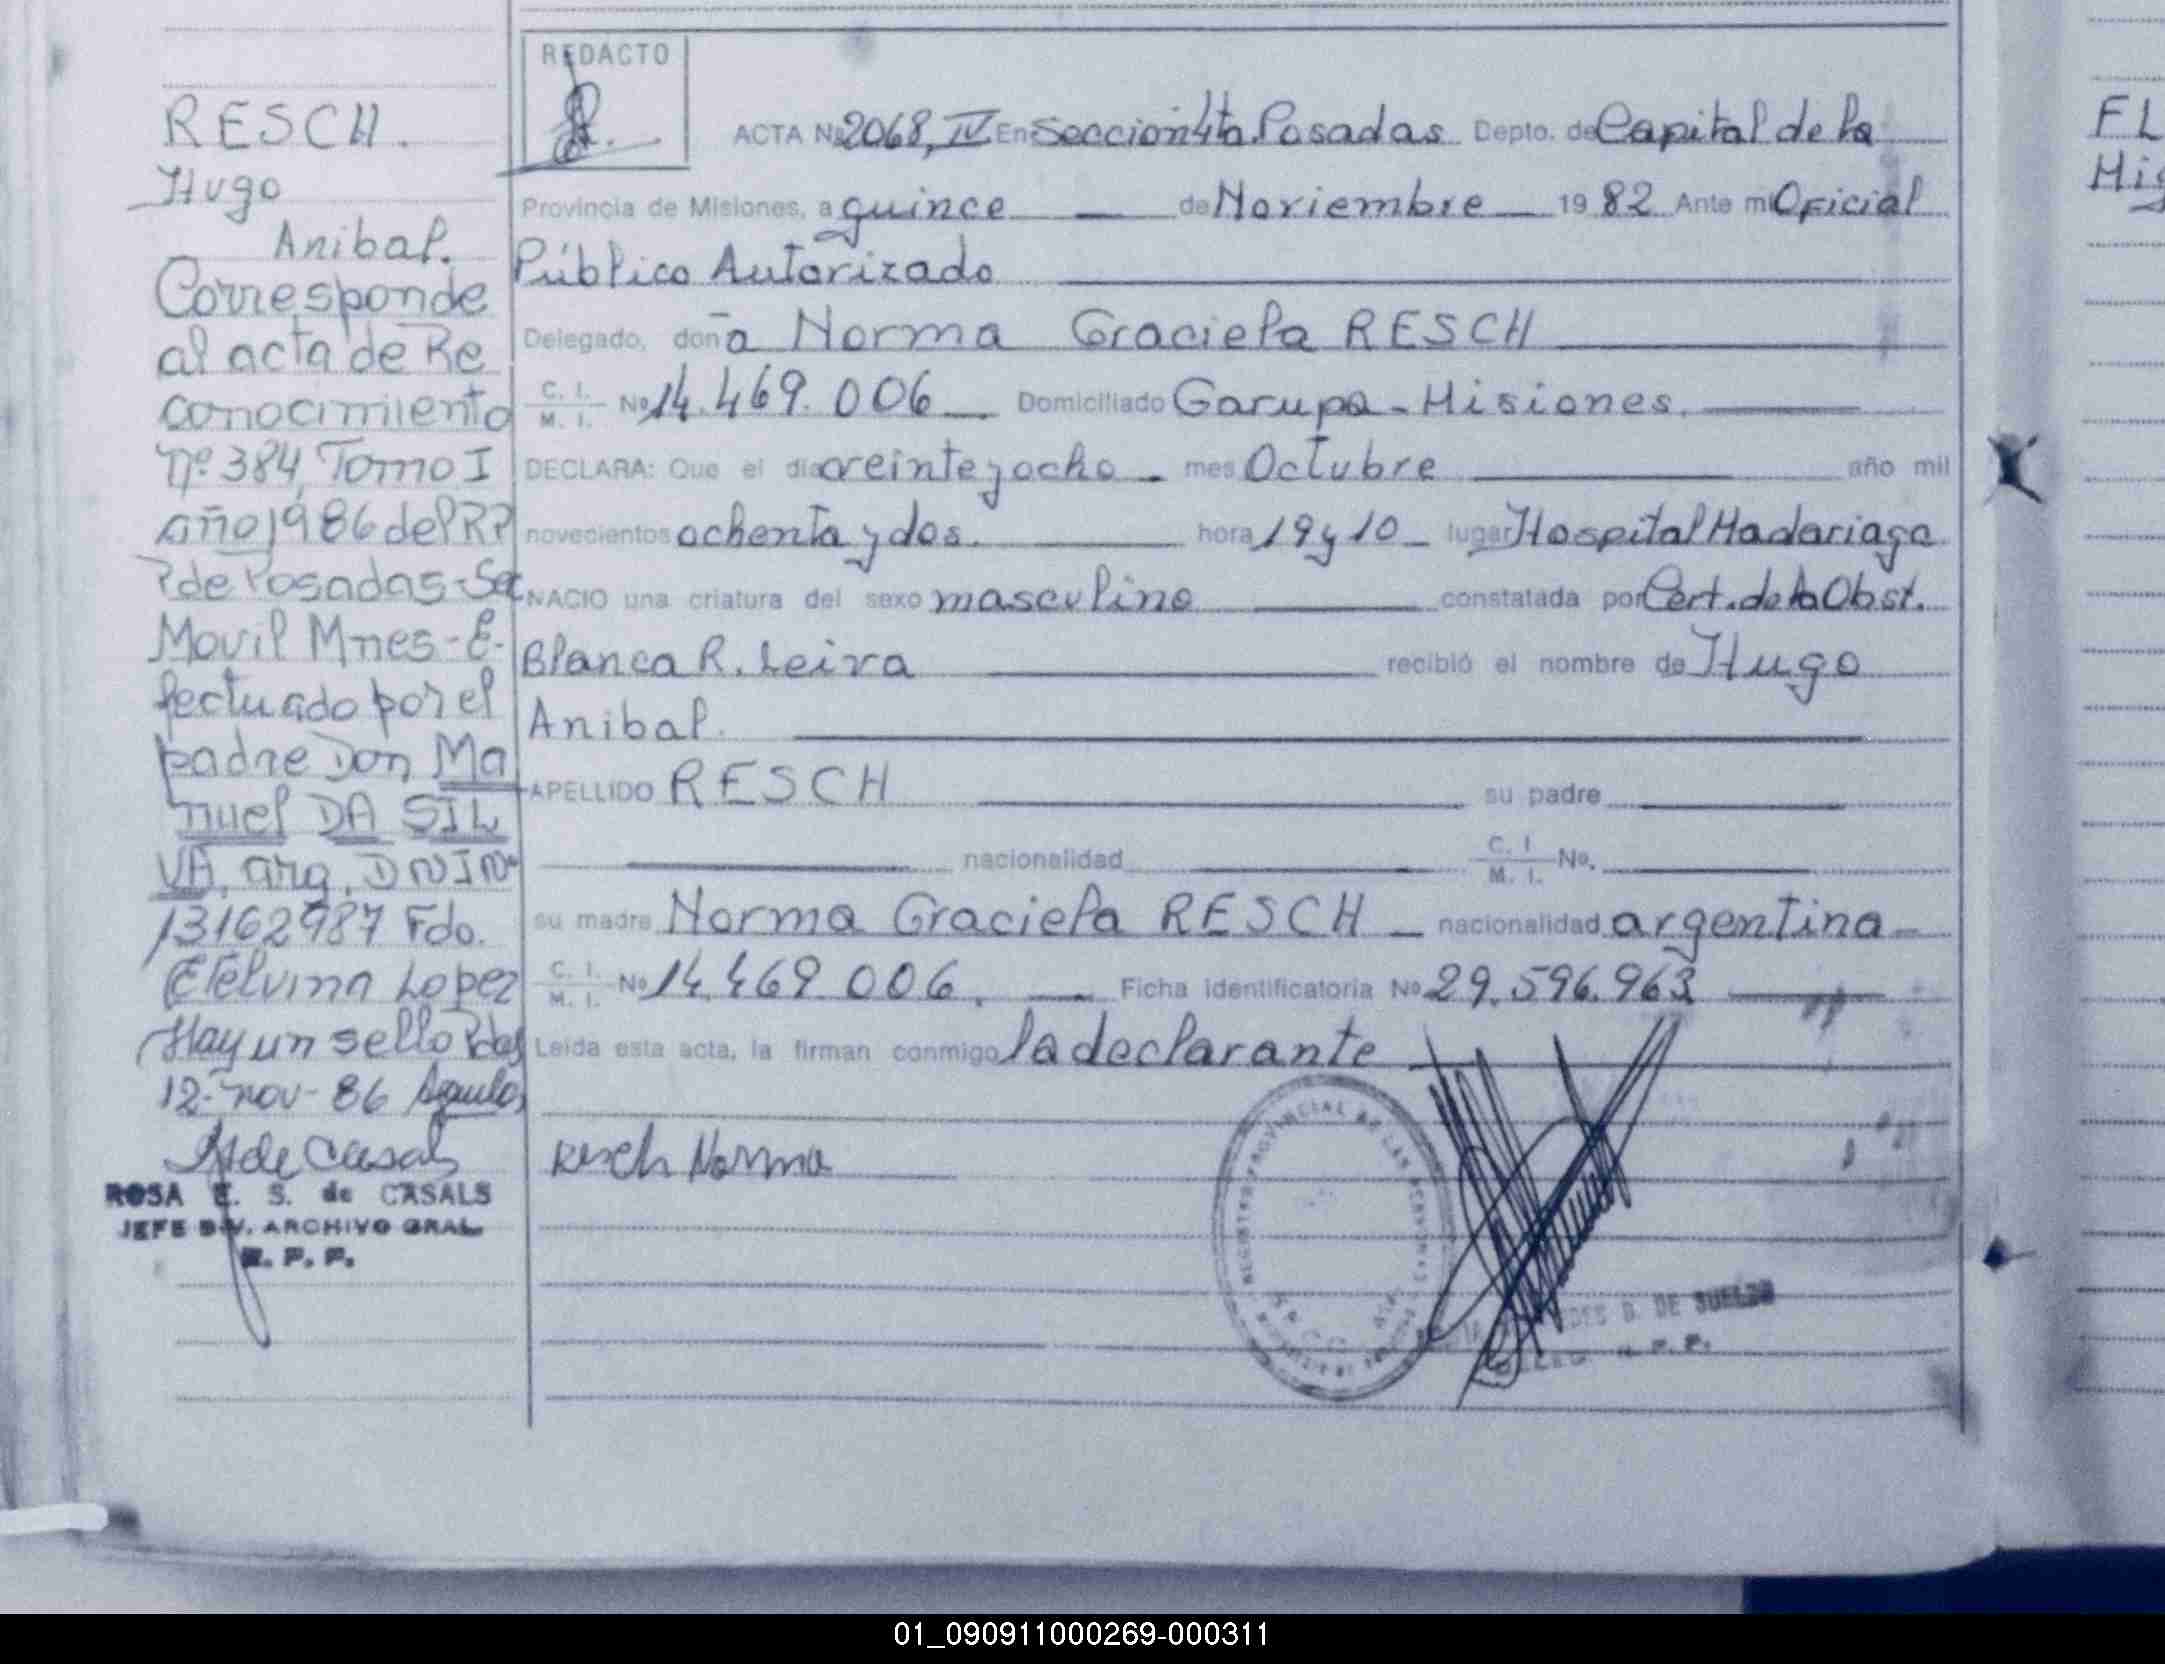 RESCH.
Hugo
Anibal.
Corresponde
al acta de Re
conocimiento
nº 384, Tomo I
año 1986 del RP
P de Posadas-Sec
Movil Mnes-E-
fectuado por el
padre Don Ma
nuel DA SIL
VA, arg, DNI Nº
13162987 Fdo.
Etelvina Lopez
Hay un sello Pdas
12-nov-86
ROSA E. S. de CASALS
JEFE DIV. ARCHIVO GRAL
R. P. P.
REDACTO
ACTA Nº 2068, IV En Seccion 4ta. Posadas Depto. de Capital de la
Provincia de Misiones, a quince de Noviembre 1982 Ante mi Oficial
Público Autorizado
Delegado, doña Norma Graciela RESCH
C. I. M. I. Nº 14.469.006 Domiciliado Garupa-Misiones.
DECLARA: Que el día veinte y ocho mes Octubre año mil
novecientos ochenta y dos. hora 19 y 10 lugar Hospital Madariaga
NACIO una criatura del sexo masculino constatada por Cert. de la Obst.
Blanca R. Leiva recibió el nombre de Hugo
Anibal.
APELLIDO RESCH su padre
nacionalidad C. I. M. I. Nº.
su madre Norma Graciela RESCH nacionalidad argentina
C. I. M. I. Nº 14.469.006. Ficha identificatoria Nº 29.596.963
Leída esta acta, la firman conmigo la declarante
Resch Norma
REGISTRO PROVINCIAL DE LAS PERSONAS
B. DE SUELDO
R. P. P.
FL
Mi
01_090911000269-000311